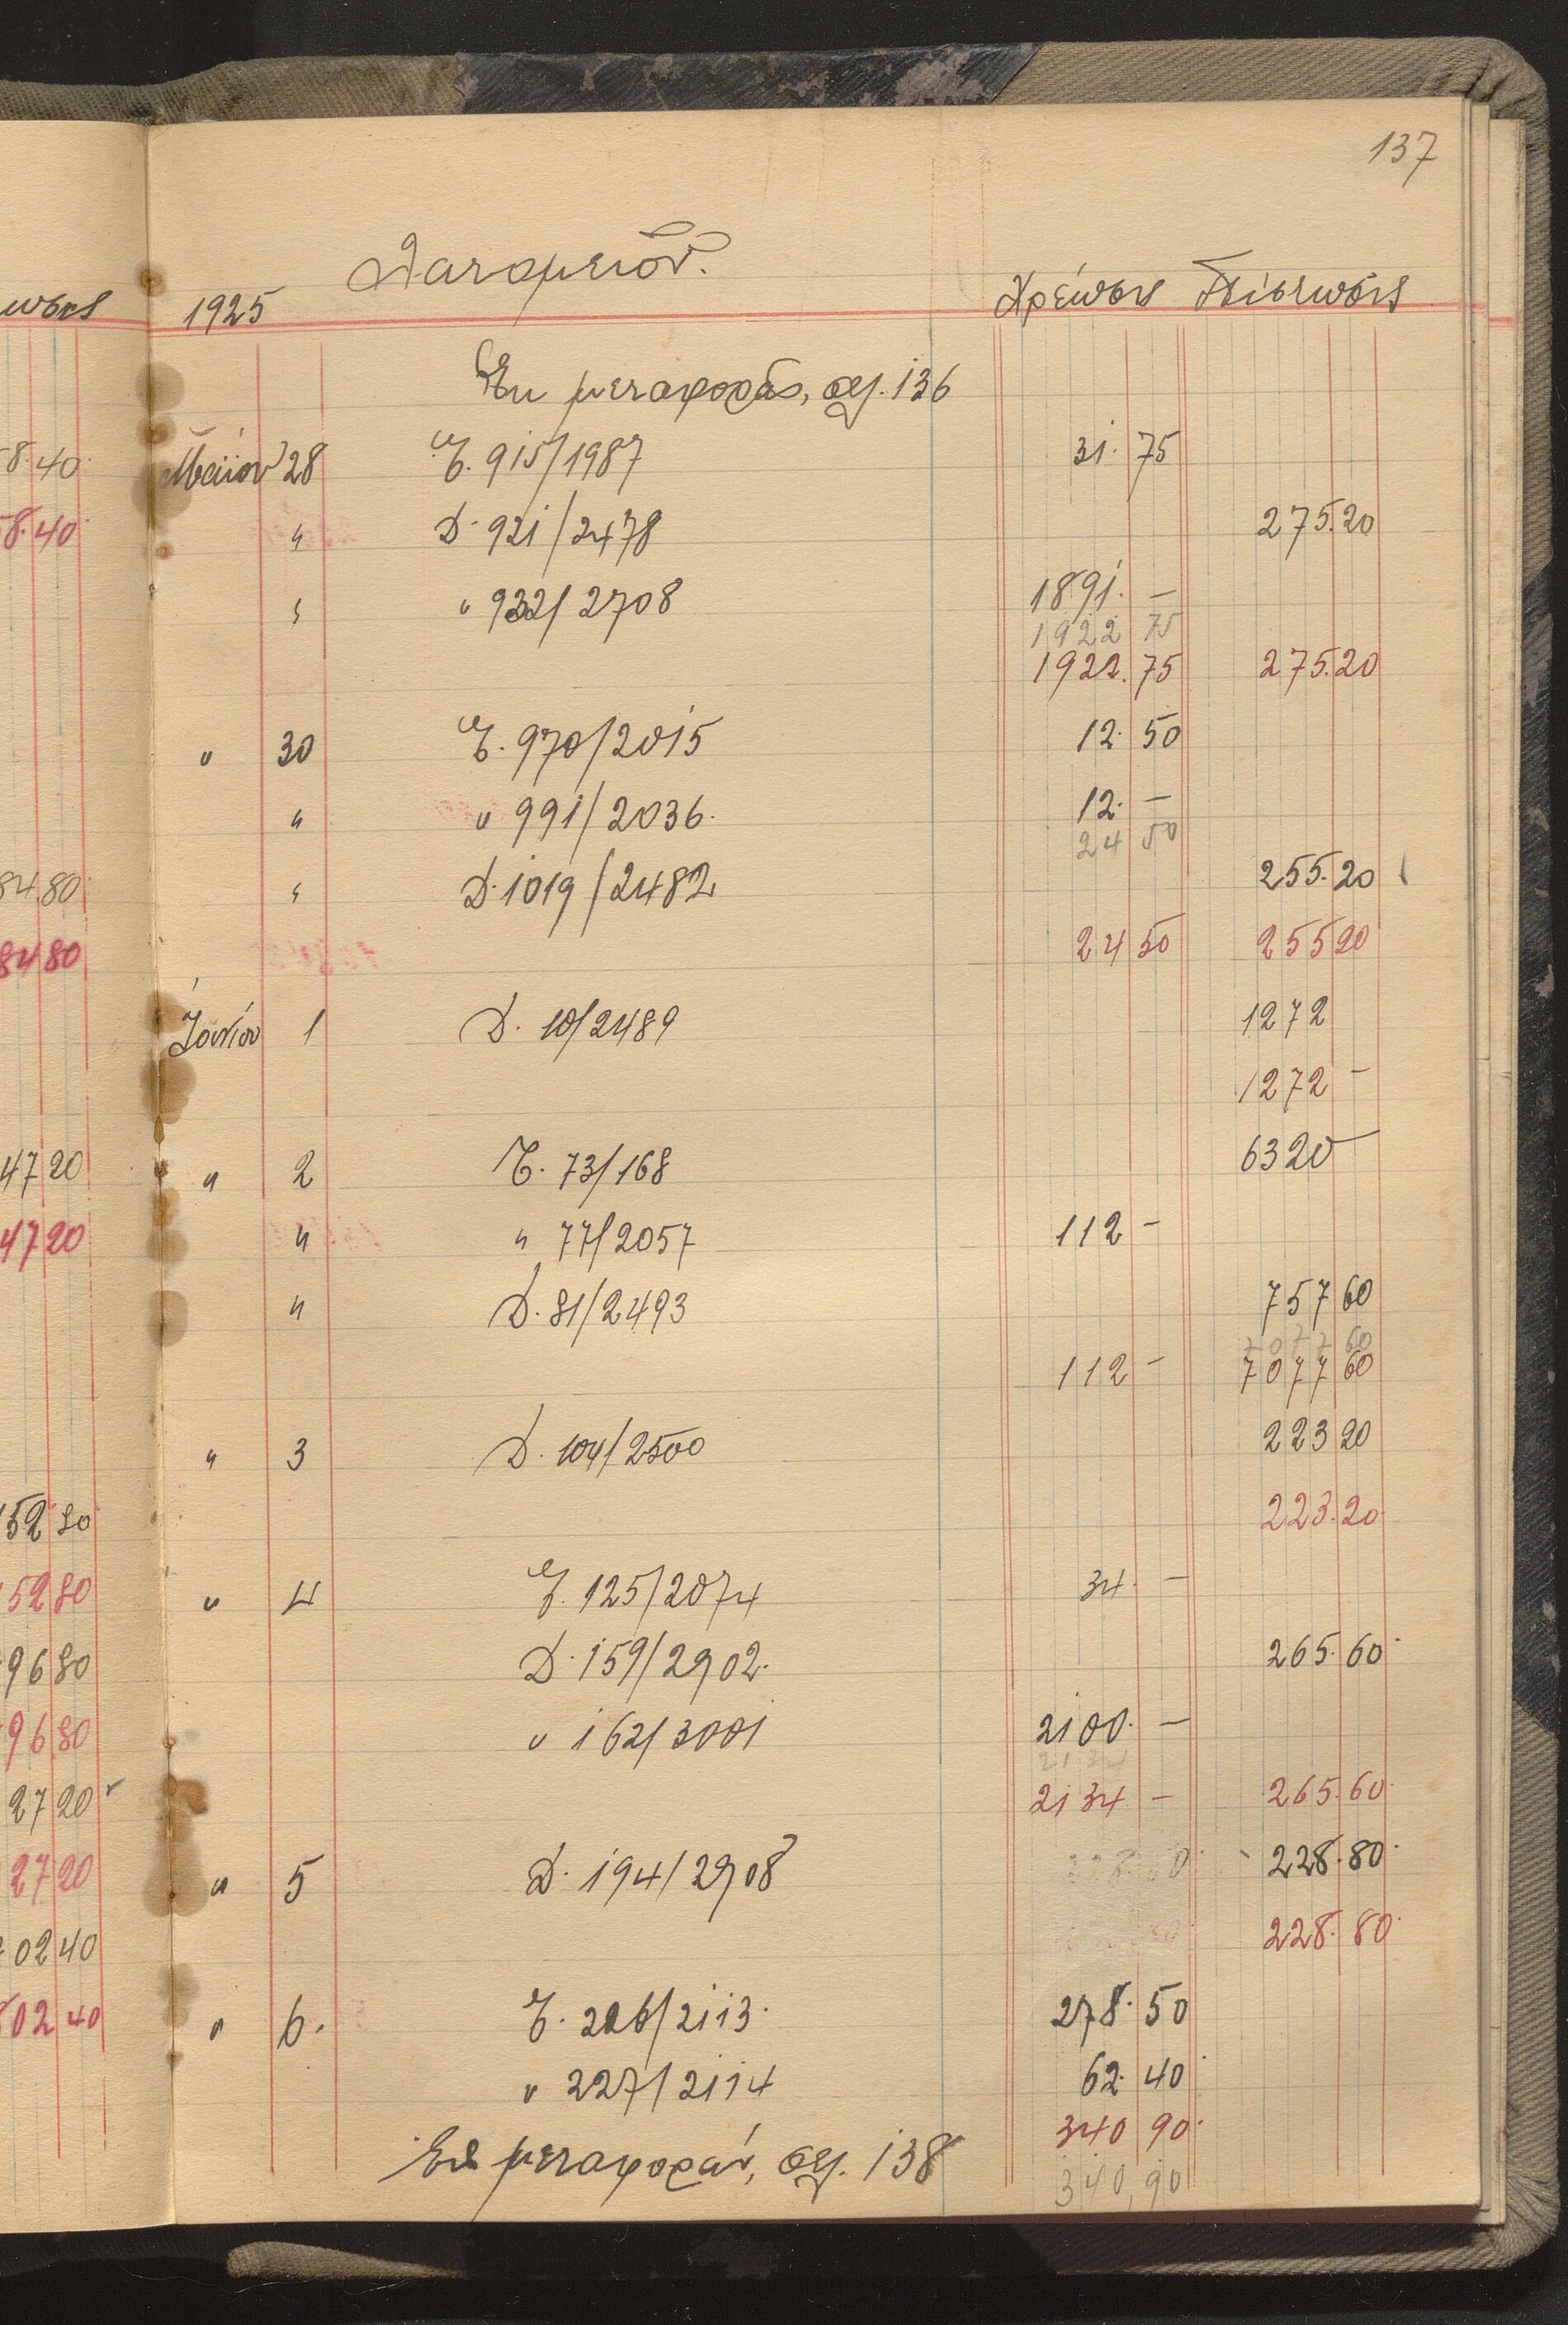 137
Λατομεῖον.
1925 Χρέωσις Πίστωσις
Ἐκ μεταφορᾶς, σελ. 136
Μαΐου 28 Ε. 915/1987 31. 75
" Δ. 921/2478 275.20
" " 932/2708 1891. —
1922 75
1922. 75 275.20
" 30 Ε. 970/2015 12. 50
" " 991/2036. 12. —
24 50
" Δ. 1019/2482 255.20
24 50 255 20
Ἰουνίου 1 Δ. 10/2489 1272
1272 —
" 2 Ε. 73/168 6320 —
" " 77/2057 112 —
" Δ. 81/2493 757 60
7077 60
112 — 7077 60
" 3 Δ. 104/2500 223 20
223.20
" 4 Ε. 125/2074 34. —
Δ. 159/2902. 265.60
" 162/3001 2100. —
2134
2134 — 265.60
" 5 Δ. 194/2908 228.80
228.80
" 6. Ε. 226/2113. 278. 50
" 227/2114 62. 40
340 90
Εἰς μεταφοράν, σελ. 138
340,90
8.40
8.40
84.80
84 80
47 20
47 20
152 80
52 80
96 80
96 80
27 20
27 20
02 40
02 40